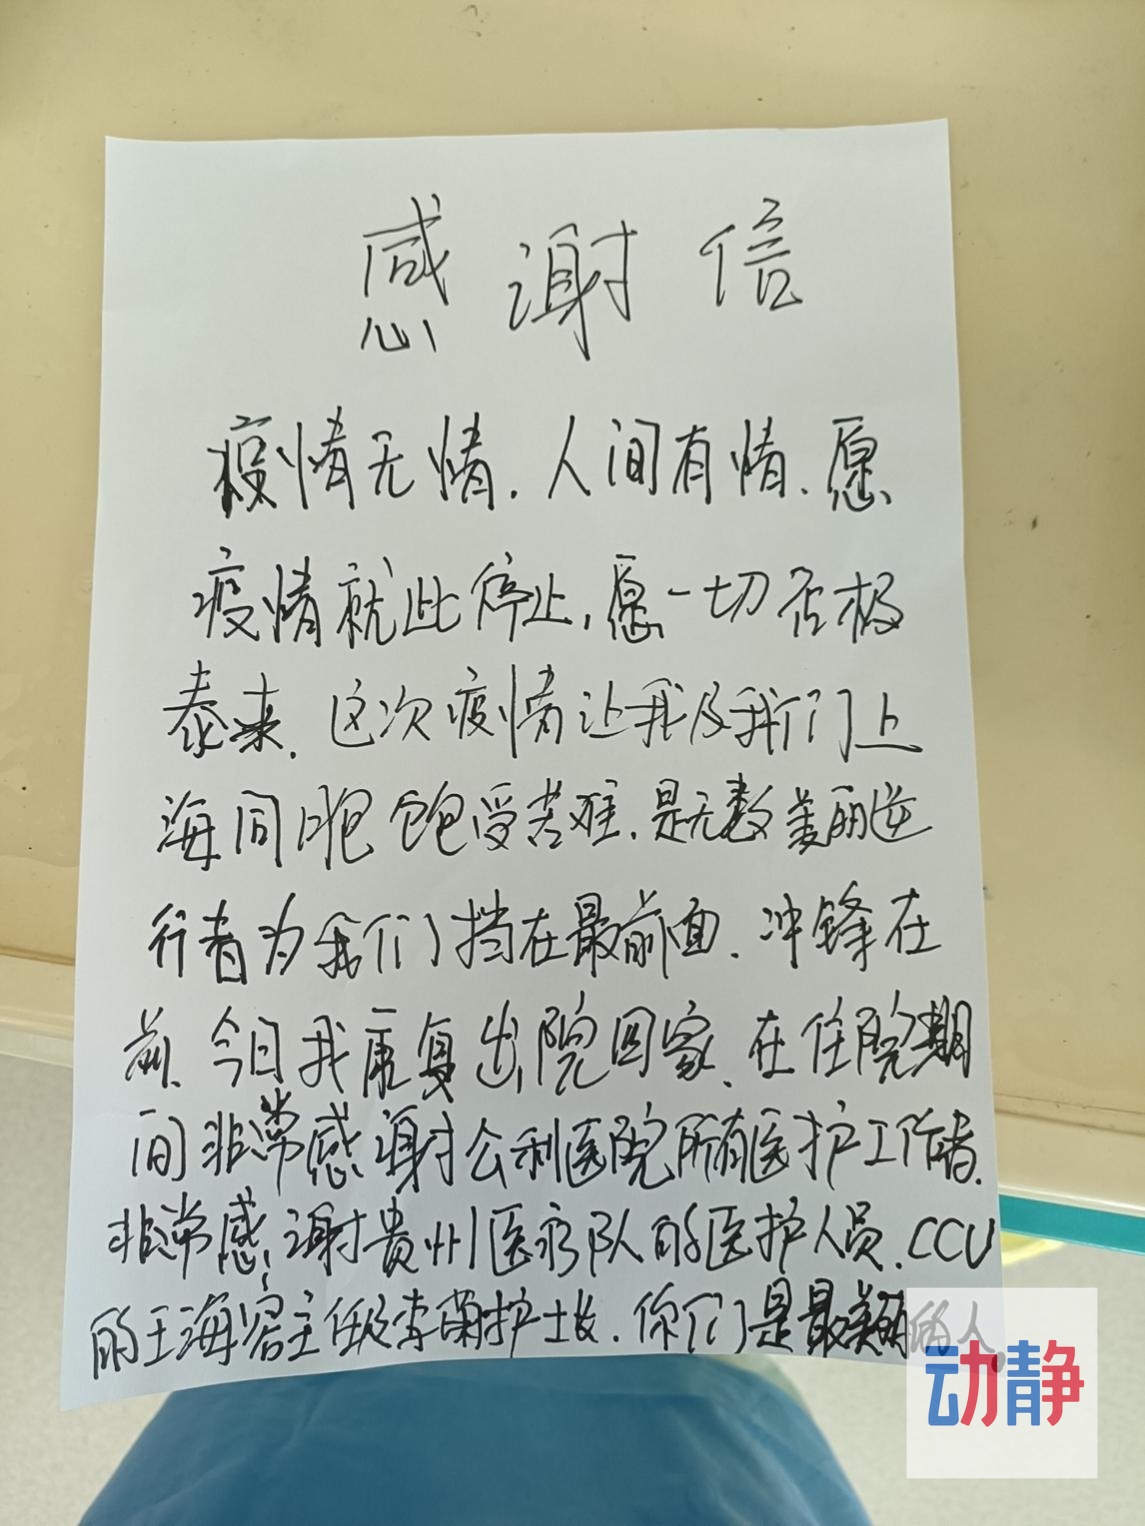 感谢信
疫情无情.人间有情.愿
疫情就此停止,愿一切否极
泰来.这次疫情让我及我们上
海同胞饱受苦难.是无数美丽逆
行者为我们挡在最前面.冲锋在
前.今日我康复出院回家.在住院期
间非常感谢公利医院所有医护工作者.
非常感谢贵州医疗队的医护人员.CCU
的王海容主任及李菊护士长.你们是最美丽的人.
动静